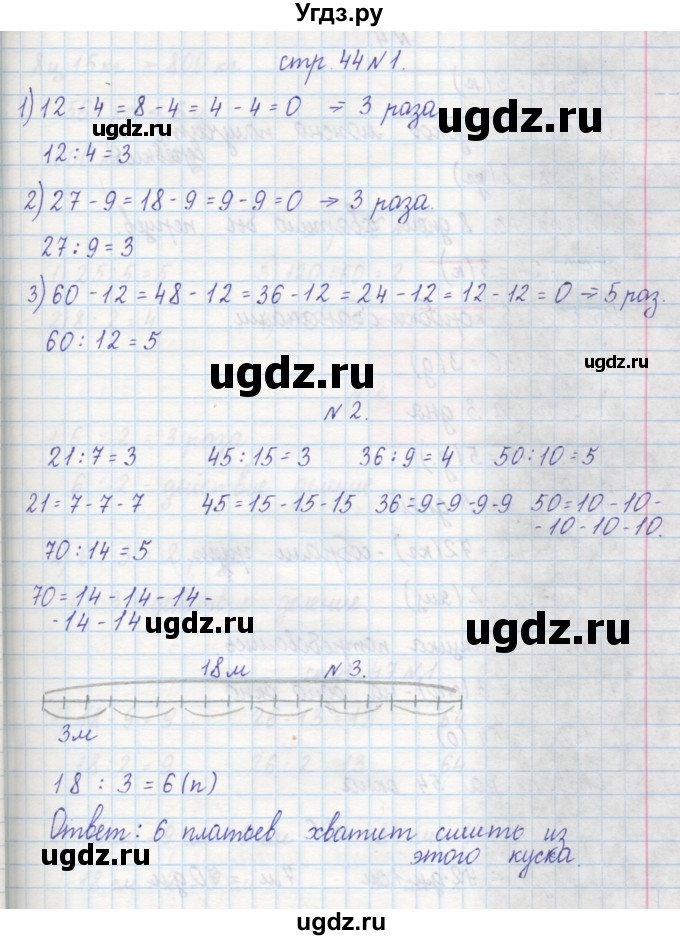 Угдз.ру
стр. 44 №1.
1) 12 - 4 = 8 - 4 = 4 - 4 = 0 ⇒ 3 раза.
ugdz.ru
ugdz.ru
12 : 4 = 3
2) 27 - 9 = 18 - 9 = 9 - 9 = 0 → 3 раза.
27 : 9 = 3
3) 60 - 12 = 48 - 12 = 36 - 12 = 24 - 12 = 12 - 12 = 0 ⇒ 5 раз.
60 : 12 = 5
ugdz.ru
ugdz.ru
№ 2.
21 : 7 = 3 45 : 15 = 3 36 : 9 = 4 50 : 10 = 5
21 = 7 - 7 - 7 45 = 15 - 15 - 15 36 = 9 - 9 - 9 - 9 50 = 10 - 10 -
- 10 - 10 - 10.
70 : 14 = 5
70 = 14 - 14 - 14 -
- 14 - 14
ugdz.ru
ugdz.ru
18 м № 3.
3м
18 : 3 = 6 (п)
Ответ: 6 платьев хватит сшить из
этого куска.
ugdz.ru
ugdz.ru
ugdz.ru